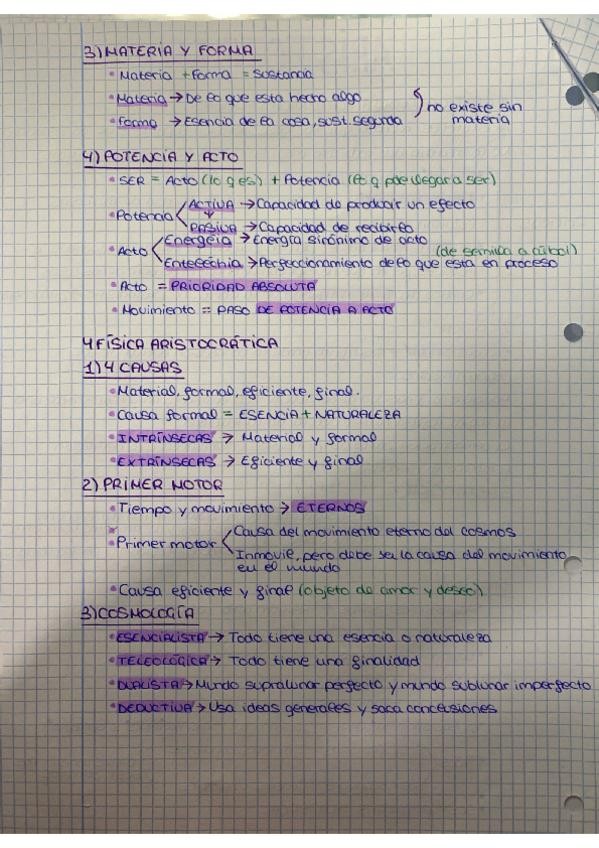 3) MATERIA Y FORMA
• Materia + Forma = Sustancia
• Materia → De lo que esta hecho algo
• Forma → Esencia de la cosa, sust. segunda
no existe sin materia
4) POTENCIA Y ACTO
• SER = Acto (lo q es) + Potencia (lo q puede llegar a ser)
• Potencia
ACTIVA → Capacidad de producir un efecto
PASIVA → Capacidad de recibirlo
• Acto
Energeia → Energía sinónimo de acto
Entelechia → Perfeccionamiento de lo que esta en proceso
(de semilla a arbol)
• Acto = PRIORIDAD ABSOLUTA
• Movimiento = PASO DE POTENCIA A ACTO
4 FÍSICA ARISTOCRÁTICA
1) 4 CAUSAS
• Material, formal, eficiente, final.
• Causa formal = ESENCIA + NATURALEZA
• INTRÍNSECAS → Material y formal
• EXTRÍNSECAS → Eficiente y final
2) PRIMER MOTOR
• Tiempo y movimiento → ETERNOS
• Primer motor
Causa del movimiento eterno del cosmos
Inmovil, pero debe ser la causa del movimiento
en el mundo
• Causa eficiente y final (objeto de amor y deseo)
3) COSMOLOGÍA
• ESENCIALISTA → Todo tiene una esencia o naturaleza
• TELEOLÓGICA → Todo tiene una finalidad
• DUALISTA → Mundo supralunar perfecto y mundo sublunar imperfecto
• DEDUCTIVA → Usa ideas generales y saca conclusiones